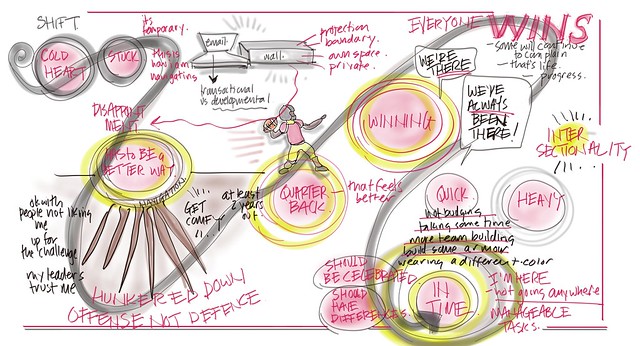 SHIFT
COLD
HEART
STUCK
its
temporary.
this is
how i am
navigating
email.
wall.
projection
boundary.
own space
private.
transactional
vs developmental
EVERYONE
WINS
some will continue
to complain
that's life.
progress.
WE'RE
THERE
WE'VE
ALWAYS
BEEN
THERE!
WINNING
INTER
SECTIONALITY
DISAPPOINT
MENT
HAS TO BE A
BETTER WAY
NAVIGATION
ok with
people not liking
me
up for
the challenge
my leaders
trust me
GET
COMFY
at least
2 years
out
QUARTER
BACK
that feels
better
QUICK
HEAVY
not budging
taking some time
more team building
build some armour
wearing a different color
HUNKERED DOWN
OFFENSE NOT DEFENCE
SHOULD
BE CELEBRATED
SHOULD
HAVE
DIFFERENCES.
IN
TIME
I'M HERE
not going anywhere
MANAGEABLE
TASKS.